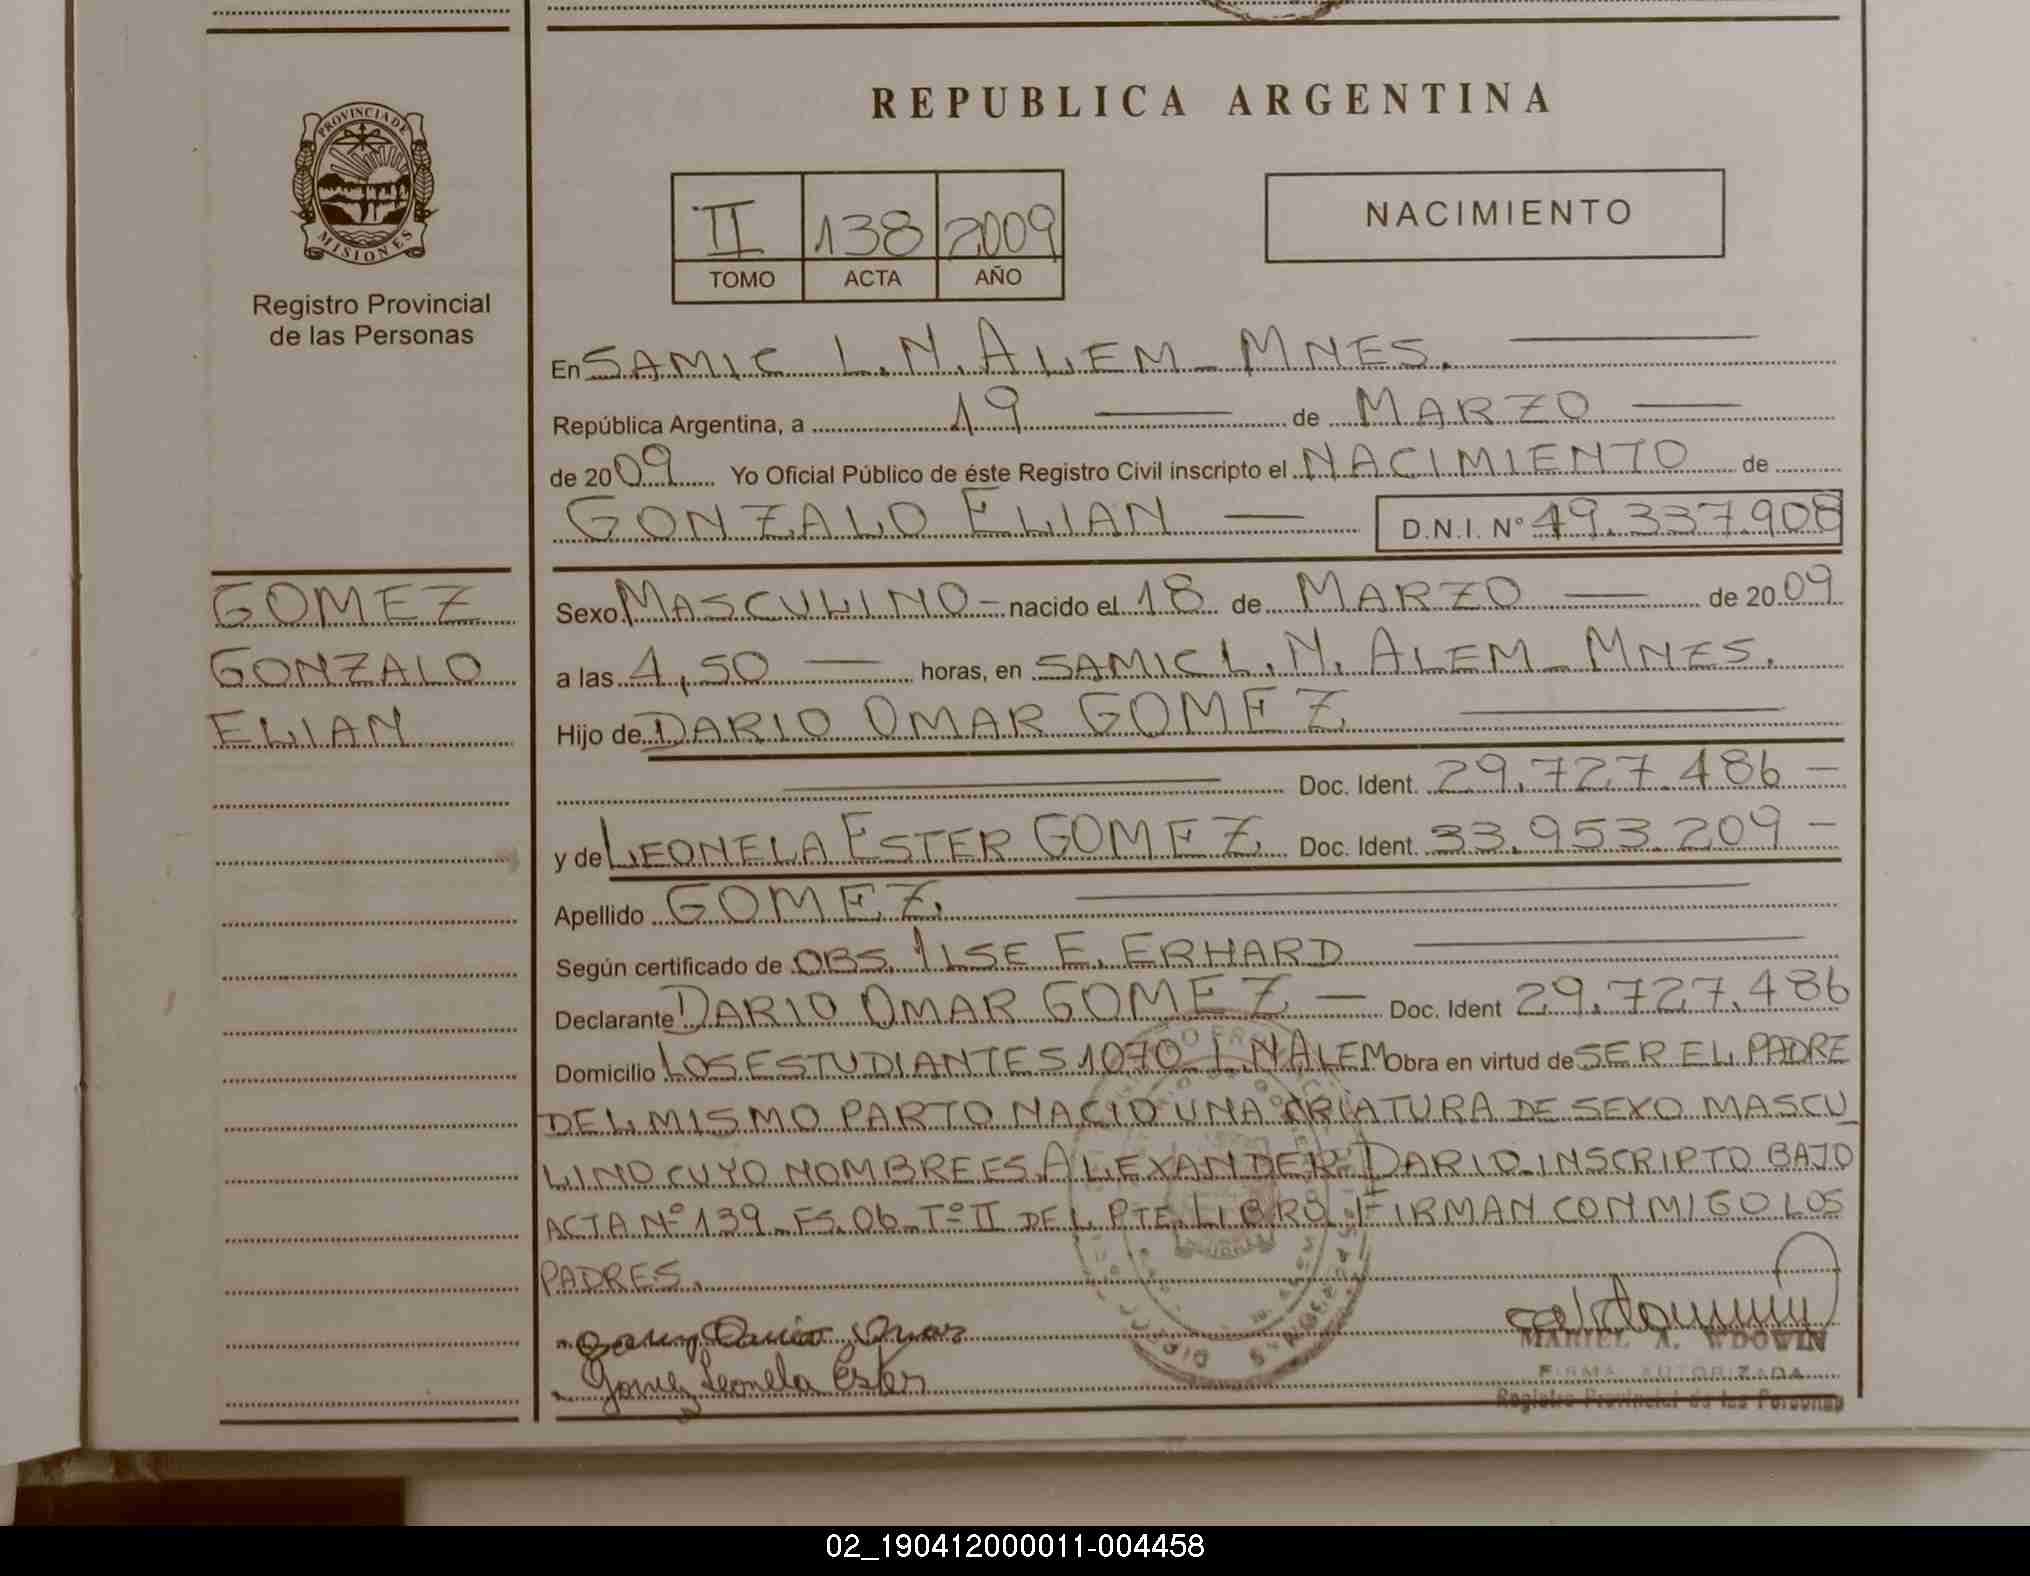 PROVINCIA DE
MISIONES
Registro Provincial
de las Personas
GOMEZ
GONZALO
ELIAN
REPUBLICA ARGENTINA
II 138 2009
TOMO ACTA AÑO
NACIMIENTO
En SAMIC L.N. ALEM - MNES.
República Argentina, a 19 de MARZO
de 2009 Yo Oficial Público de éste Registro Civil inscripto el NACIMIENTO de
GONZALO ELIAN D.N.I. N° 49.337.908
Sexo MASCULINO - nacido el 18 de MARZO de 2009
a las 4,50 horas, en SAMIC L.N. ALEM - MNES.
Hijo de DARIO OMAR GOMEZ
Doc. Ident. 29.727.486 -
y de LEONELA ESTER GOMEZ Doc. Ident. 33.953.209 -
Apellido GOMEZ.
Según certificado de OBS. ILSE E. ERHARD
Declarante DARIO OMAR GOMEZ - Doc. Ident 29.727.486
Domicilio LOS ESTUDIANTES 1070 L.N ALEM Obra en virtud de SER EL PADRE
DEL MISMO PARTO NACIO UNA CRIATURA DE SEXO MASCU
LINO CUYO NOMBRE ES ALEXANDER DARIO INSCRIPTO BAJO
ACTA Nº 139 - FS. 06 - Tº II DEL PTE. LIBRO. FIRMAN CONMIGO LOS
PADRES.
Gomez Dario Omar
Gomez Leonela Ester
MARIEL A. WDOWIN
FIRMA AUTORIZADA
Registro Provincial de las Personas
02_190412000011-004458